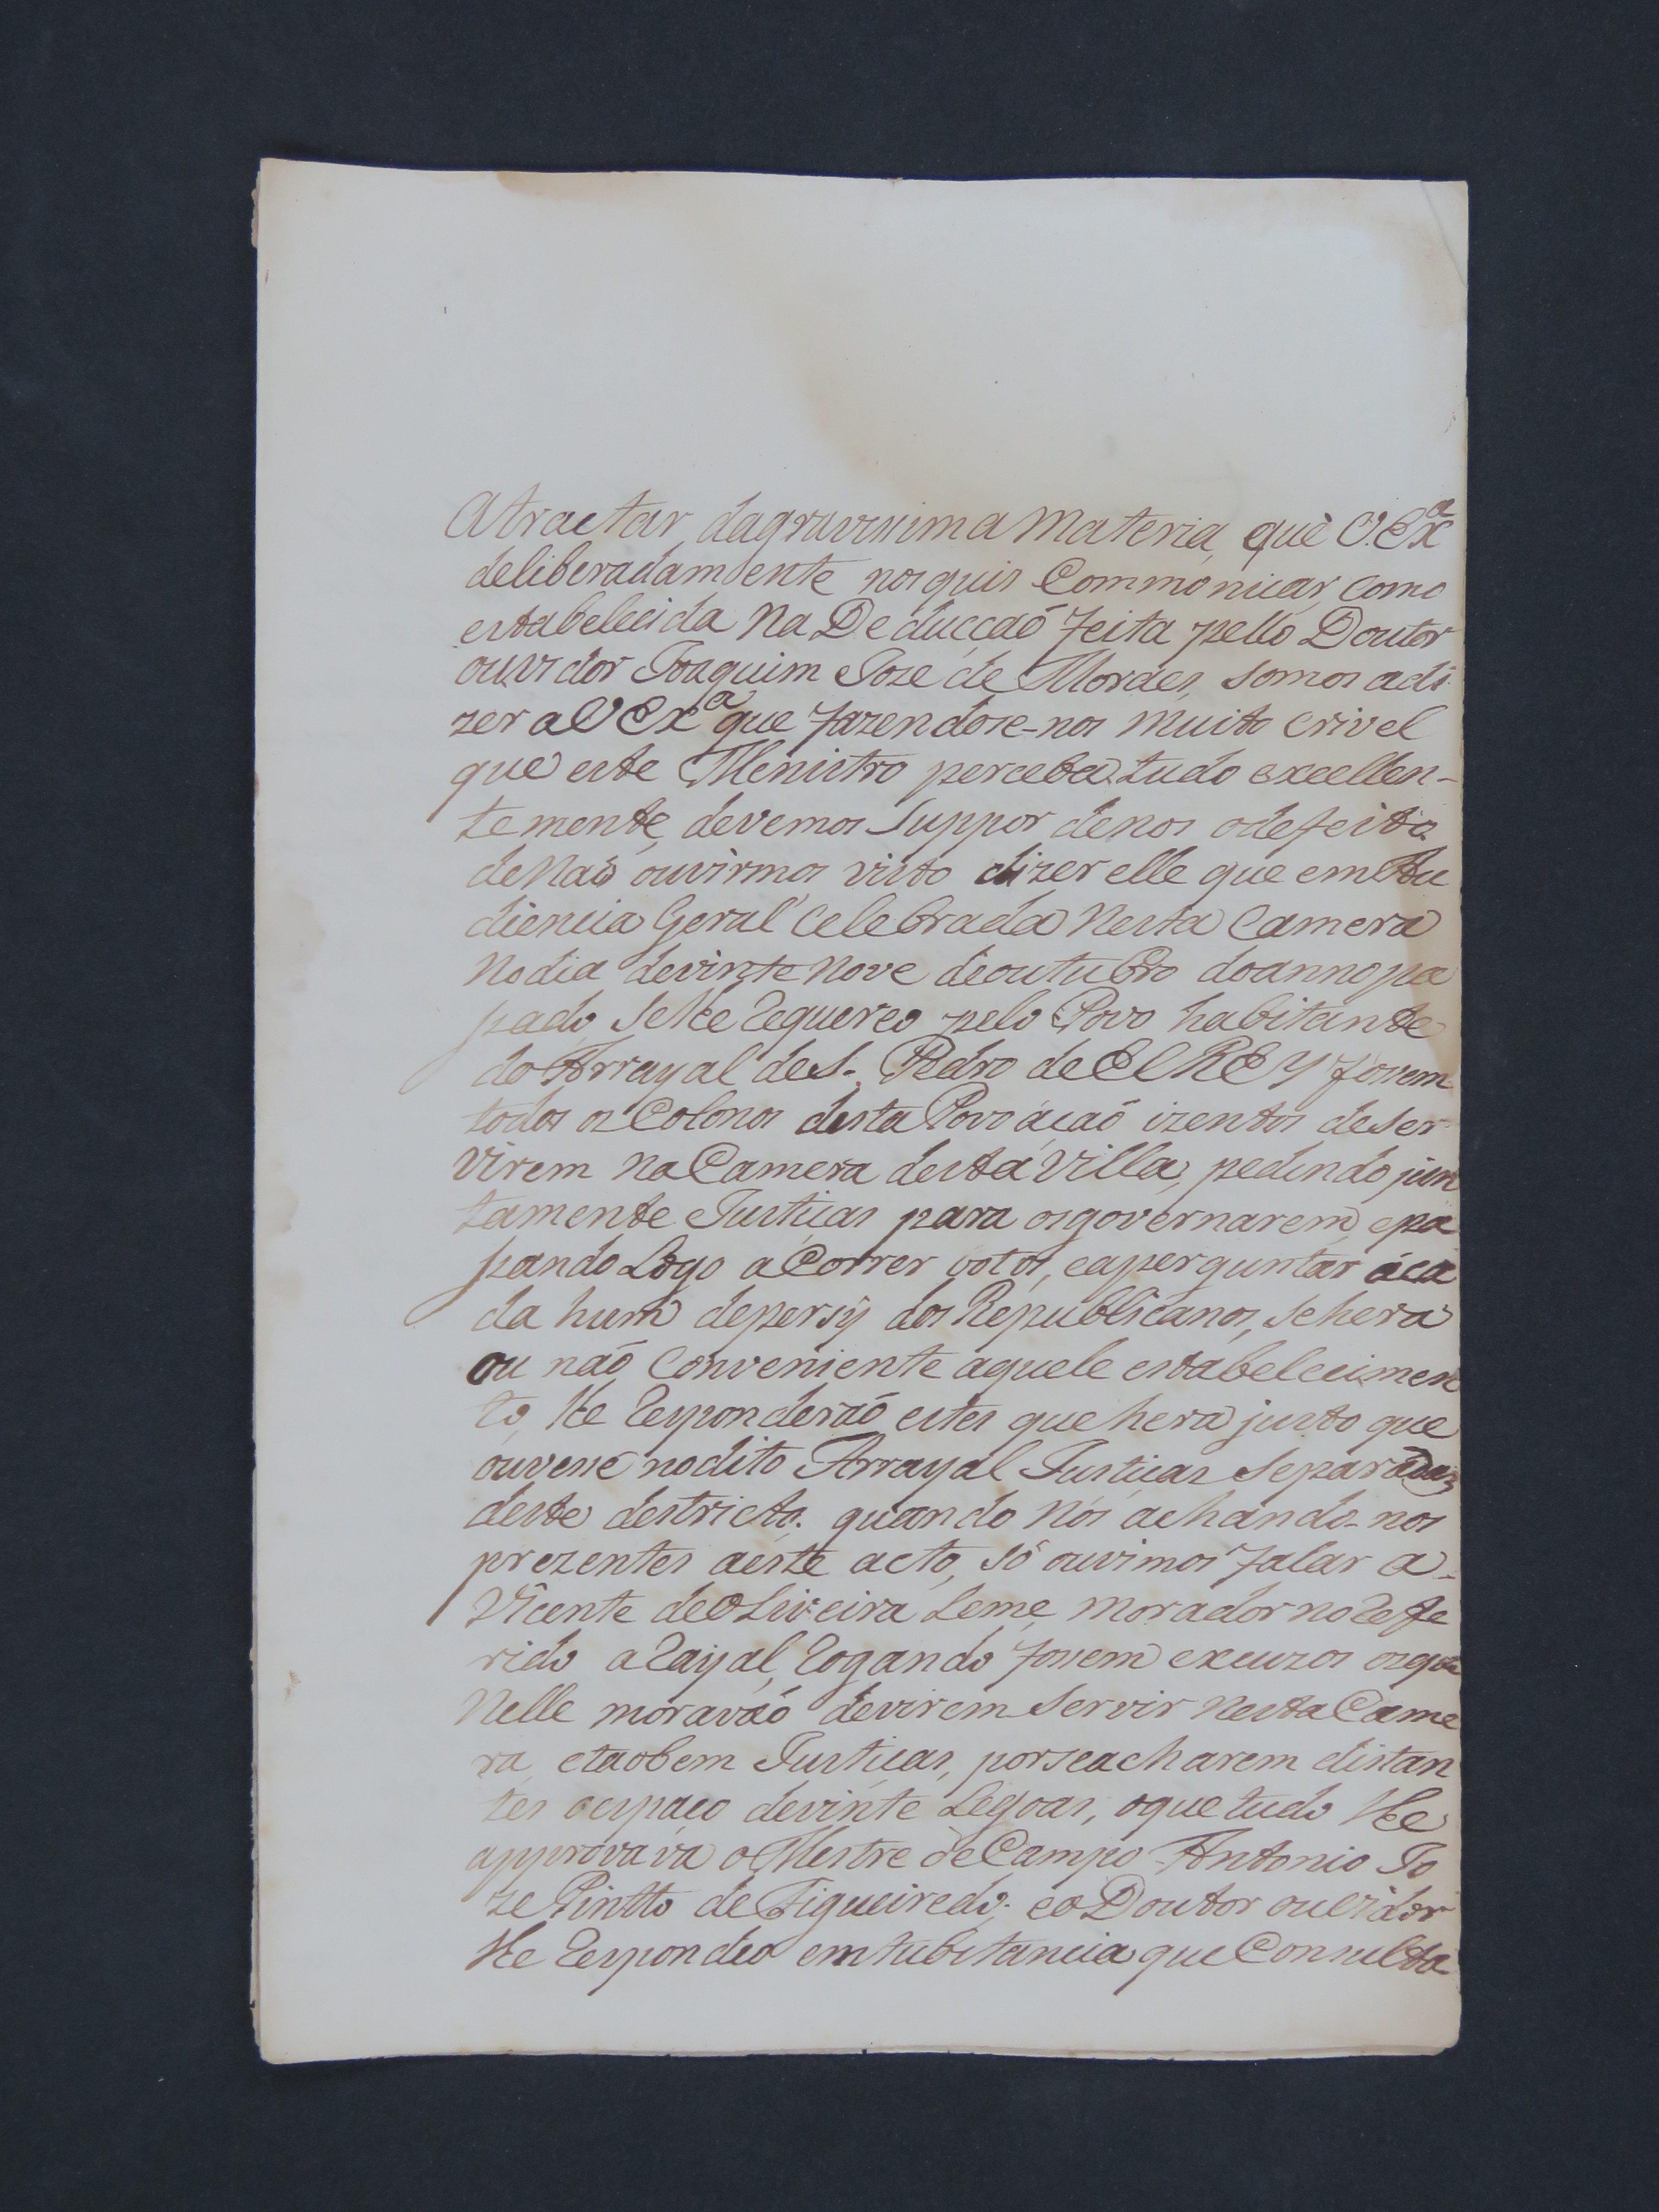 Atractar dagravissima Materia, que V. Exª
deliberadamente nosquis Commonicar, como
estabelecida Na Deducçaõ feita pello Doutor
ouvidor Joaquim Joze de Moraes, somos adi
zer aV Exª que fazendose-nos muito crivel
que este Menistro perceba tudo excellen-
temente, devemos Suppor denos odefeito
deNaõ ouvirmos visto dizer elle que emAu
diencia Geral celebrada Nesta Camera
Nodia devinte Nove deoutubro doannopas
sado selhe requereo pelo Povo habitante
do Arrayal deS. Pedro de ElREY fossem
todos os Colonos desta Povoaçaõ izentos deser
virem Na Camera desta Villa, pedindo jun
tamente Justiças para osgovernarem, epas
sando Logo aCorrer votos, eaperguntar áca
da hum depersÿ dos Republicanos, sehera
ou naõ Conveniente aquele estabelecimen
to, lhe responderaõ estes que hera justo que
ouvesse nodito Arrayal Justiças separadas
deste destricto. quando Nós achando-nos
prezentes aeste acto, só ouvimos falar a-
Vicente deOliveira Leme, morador norefe
rido arayal, rogando fossem excuzos osque
Nelle moravaõ devirem servir Nesta Came
ra, etaobem Justiças, porseacharem distan
tes oespaço devinte Legoas, oquetudo lhe
approvava o Mestre deCampo Antonio Jo
ze Pintto de Figueiredo. eo Doutor ouvidor
lhe respondeo emsubstancia que Consulta